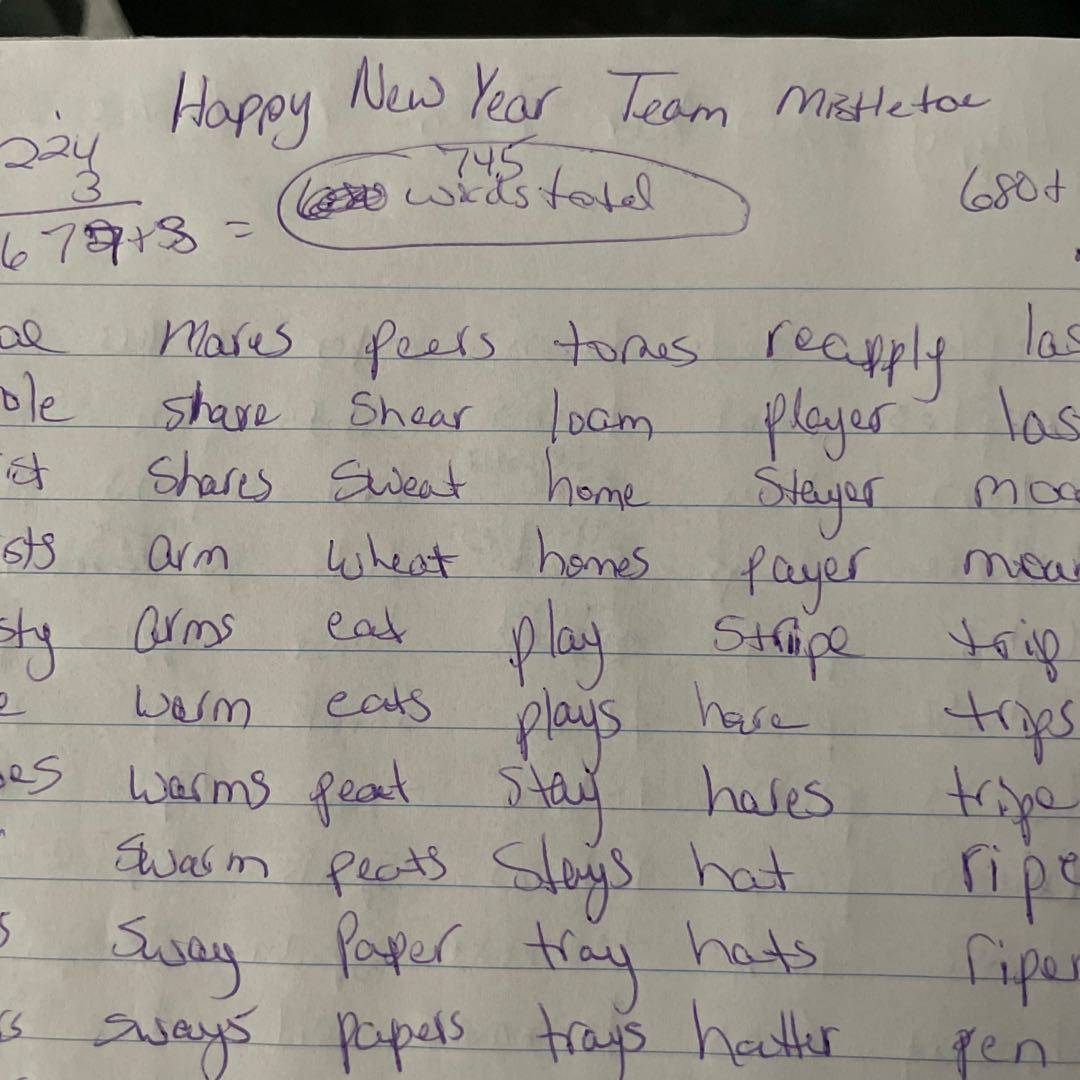 Happy New Year Team Mistletoe
224
3
745
words total
=
680+
mares peers tomes reapply
share shear loam player
shares sweat home stayer
arm wheat homes payer
arms eat play stripe trip
warm eats plays hare trips
warms peat stay hares tripe
swarm peats stays hat ripe
sway paper tray hats riper
sways papers trays hatter pen